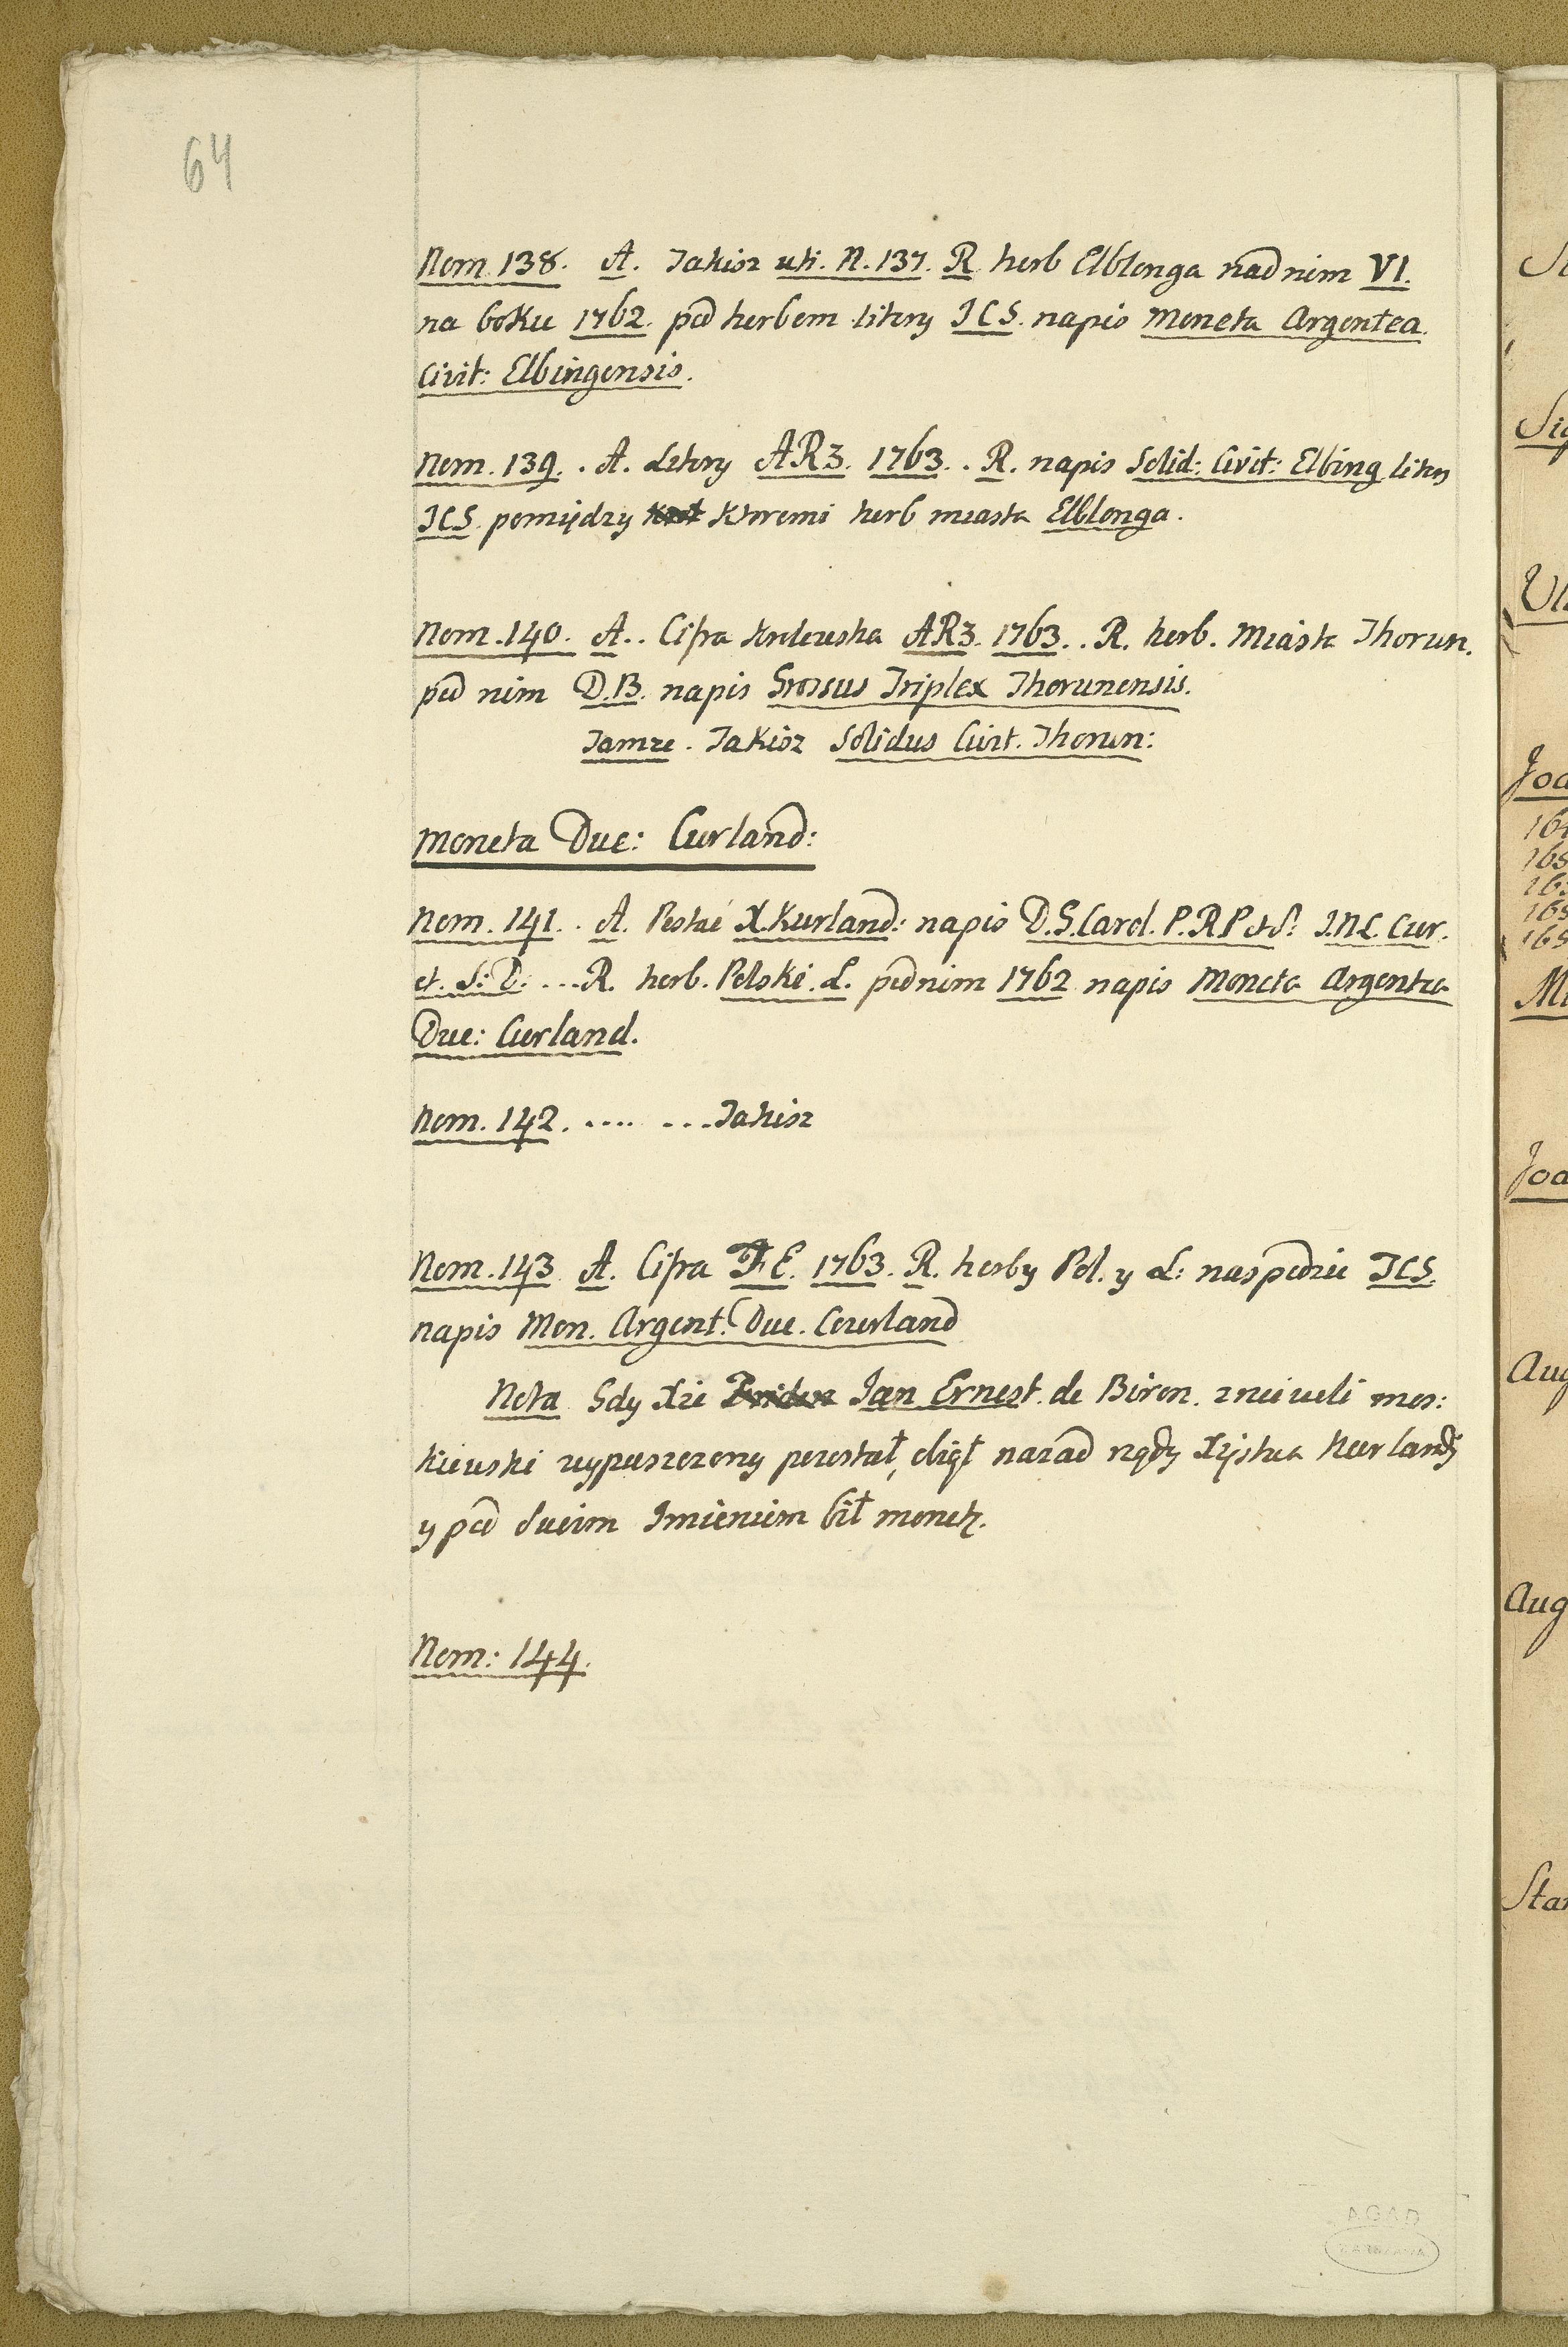 64
Nom. 138. A. Takisz uti. N. 137. R. herb Elblonga nad nim VI.
na boku 1762. pod herbem litery ICS. napis Moneta Argentea
Civit: Elbingensis.
Nom. 139. . A. Litery AR3. 1763. . R. napis Solid: Civit: Elbing litery
ICS. pomiędzy ktoremi herb miasta Elblonga.
Nom. 140. A. . Cifra Krolewska AR3. 1763. . R. herb. Miasta Thorun.
pod nim D.B. napis Grossus Triplex Thorunensis.
Tamze. Takisz Solidus Civit. Thorun:
Moneta Duc: Curland:
Nom. 141. . A. Postać X. Kurland: napis D.G. Carol. P.R.P. et S. I.N.L. Cur.
et. S: D: ... R. herb. Polski. L. pod nim 1762 napis Moneta Argentea
Duc: Curland.
Nom. 142. .... ... Takisz
Nom. 143 A. Cifra E. 1763. R. herby Pol. y L: naspodzie ICS.
napis Mon. Argent. Duc. Courland
Nota Gdy Xze Jan Ernest. de Biron. zniewoli mos:
kiewski wypuszczony pozostał, objął nazad rządy Xięstwa Kurlandy
y pod swoim Imieniem bił monetę.
Nom: 144.
AGAD
WARSZAWA